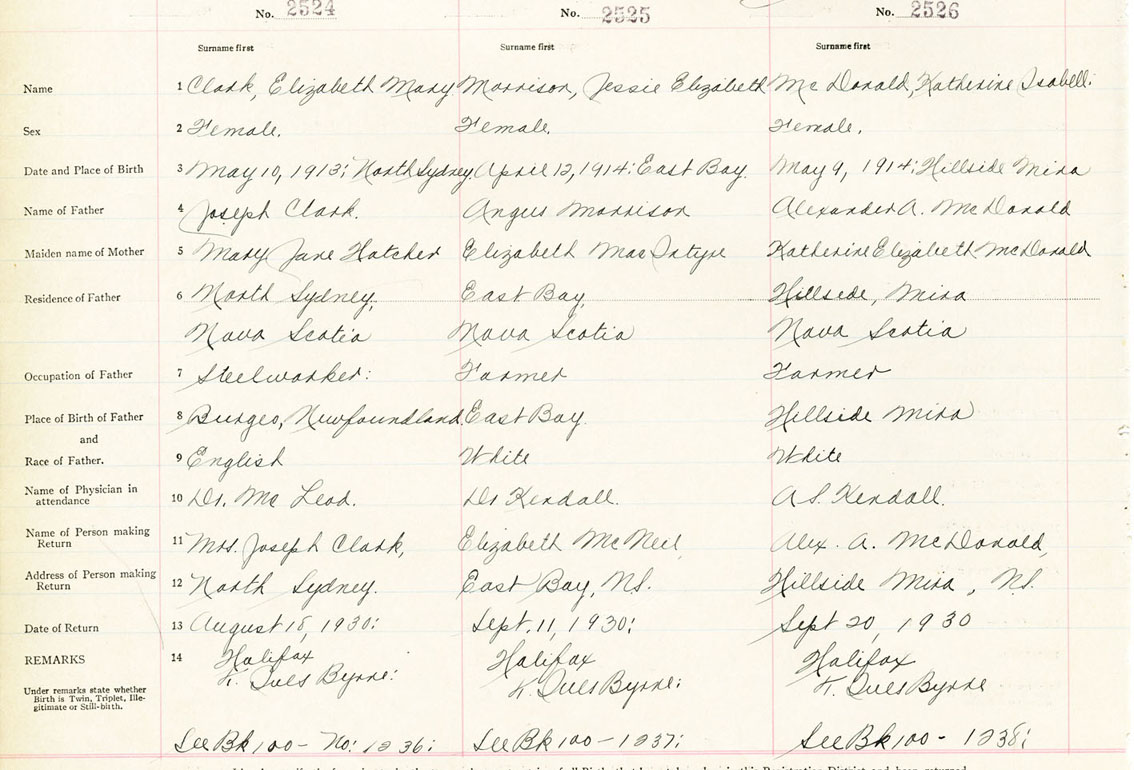 No. 2524 No. 2525 No. 2526
Surname first Surname first Surname first
Name 1 Clark, Elizabeth Mary Morrison, Jessie Elizabeth Mc Donald, Katherine Isabell:
Sex 2 Female. Female. Female.
Date and Place of Birth 3 May 10, 1913; North Sydney. April 12, 1914: East Bay. May 9, 1914: Hillside Mira
Name of Father 4 Joseph Clark. Angus Morrison Alexander A. McDonald
Maiden name of Mother 5 Mary Jane Hatcher Elizabeth MacIntyre Katherine Elizabeth McDonald
Residence of Father 6 North Sydney, East Bay, Hillside, Mira
Nova Scotia Nova Scotia Nova Scotia
Occupation of Father 7 Steelworker: Farmer Farmer
Place of Birth of Father 8 Burgeo, Newfoundland East Bay. Hillside Mira
and
Race of Father. 9 English White White
Name of Physician in
attendance 10 Dr. Mc Leod. Dr Kendall. A S. Kendall.
Name of Person making
Return 11 Mrs. Joseph Clark, Elizabeth McNeil, Alex. A. McDonald,
Address of Person making
Return 12 North Sydney. East Bay, N.S. Hillside Mira, N.S.
Date of Return 13 August 18, 1930: Sept. 11, 1930: Sept 20, 1930
REMARKS 14 Halifax Halifax Halifax
Byrne: Byrne: Byrne
Under remarks state whether
Birth is Twin, Triplet, Ille-
gitimate or Still-birth.
See Bk 100 - No: 1236: See Bk 100 - 1237: See Bk 100 - 1238: